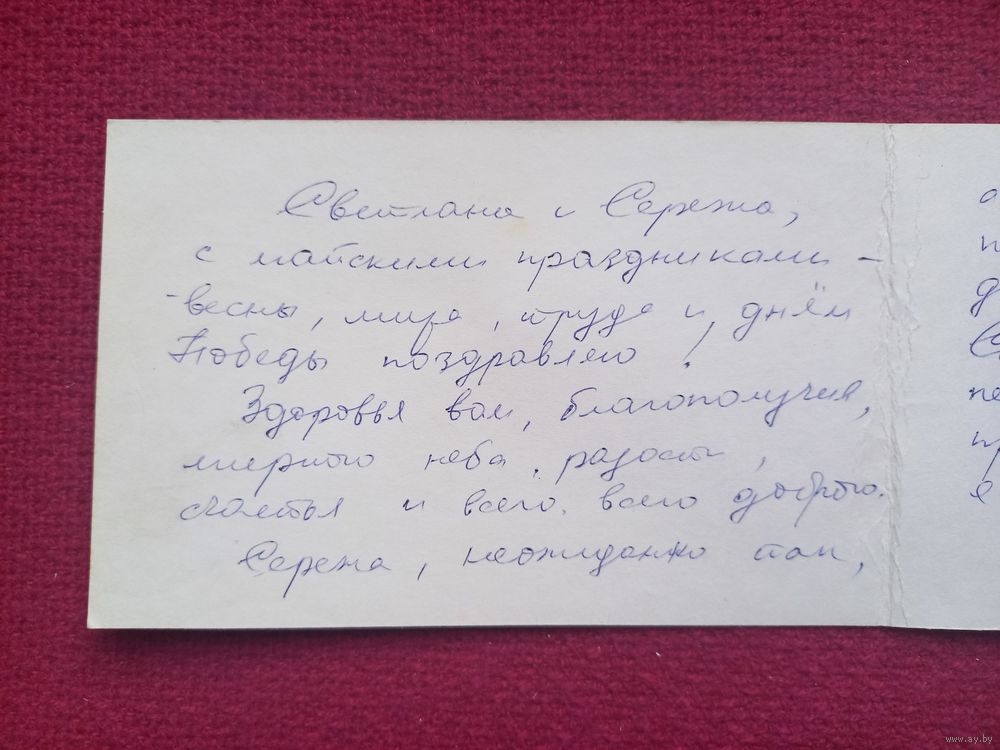 Светлана и Сережа,
с майскими праздниками -
- весны, мира, труда и днём
Победы поздравляю!
Здоровья вам, благополучия,
мирного неба, радости,
счастья и всего, всего доброго.
Сережа, неожиданно так,
а
п
д
С
пе
пр
я
www.ay.by